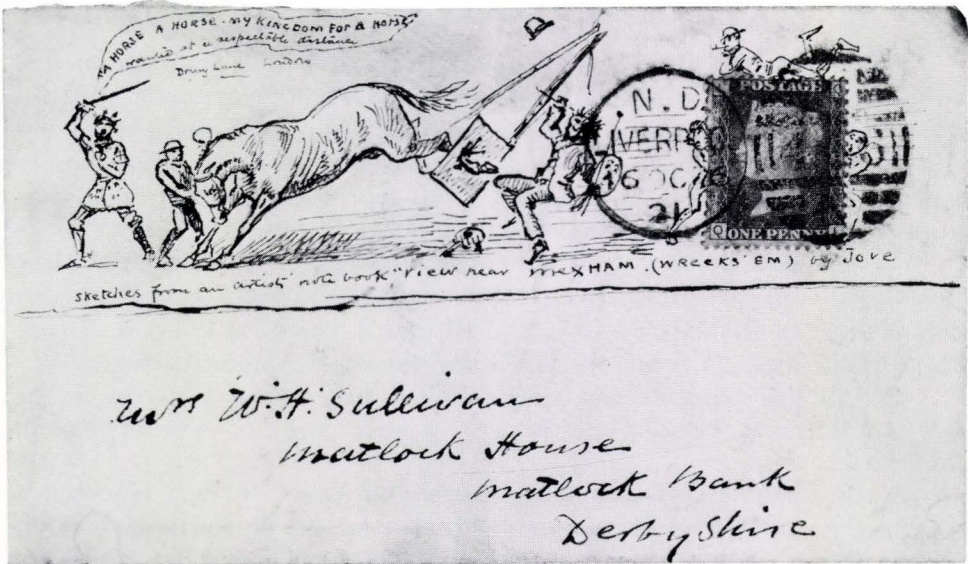 "A HORSE A HORSE - MY KINGDOM FOR A HORSE
wanted at a respectable distance
Drury Lane London
N. D.
IVERPOO
6 OC
21
POSTAGE
Q ONE PENNY
sketches from an artists' note book "View near MEXHAM. (WRECKS 'EM) by Jove
Mrs W. H. Sullivan
Matlock House
Matlock Bank
Derbyshire